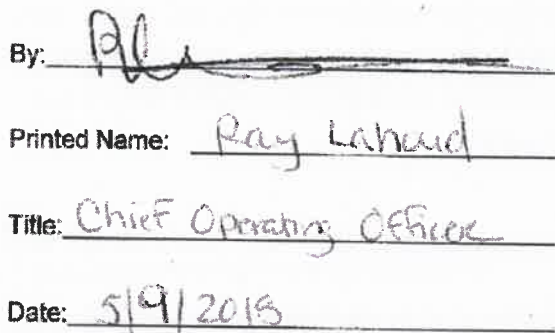 By:
Printed Name: Ray Lahoud
Title: Chief Operating Officer
Date: 5/9/2018